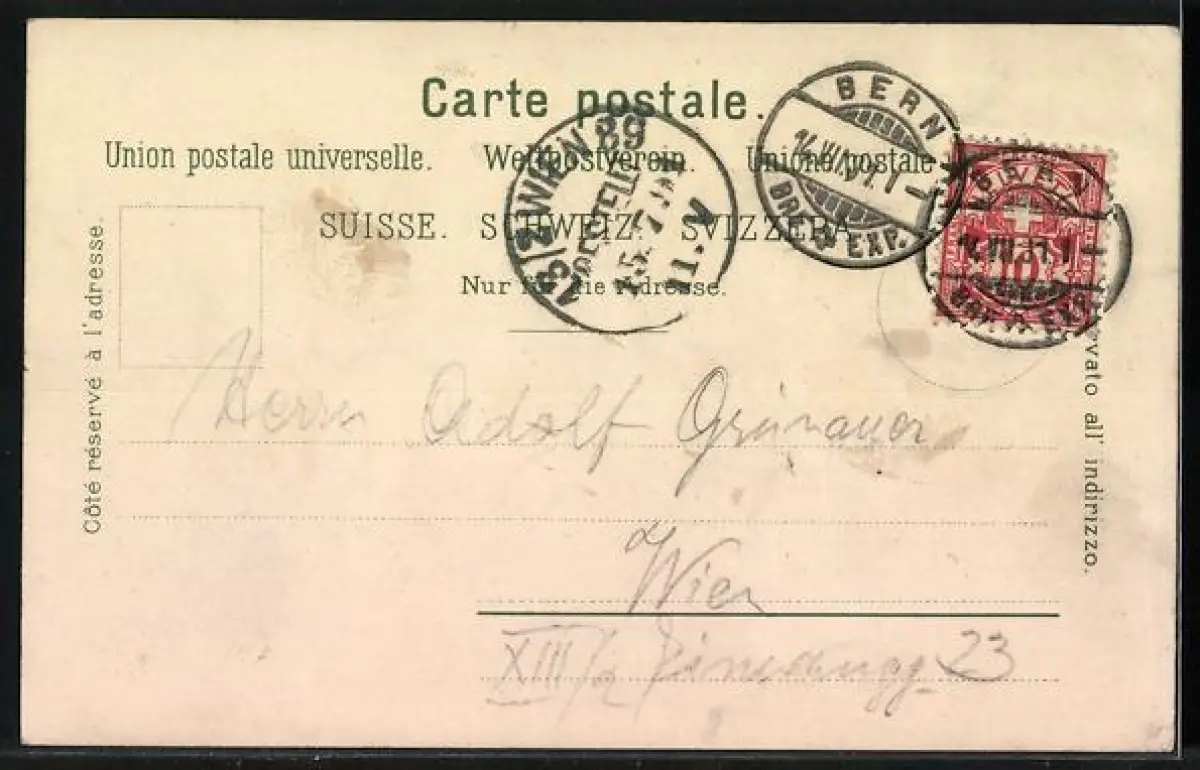 Carte postale.
Union postale universelle. Weltpostverein. Unione postale
SUISSE. SCHWEIZ. SVIZZERA
Nur für die Adresse.
Côté réservé à l'adresse.
vato all' indirizzo.
13/2 WIEN 89
15. 7. 01
11. V
BERN
14.VII.01. I
BRF. EXP.
BERN
14.VII.01. I
BRF. EXP.
10
Herrn Adolf Grünauer
Wien
XIII/2 23